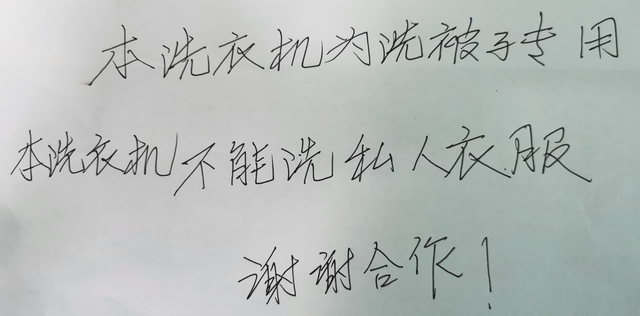 本洗衣机为洗被子专用
本洗衣机不能洗私人衣服
谢谢合作！